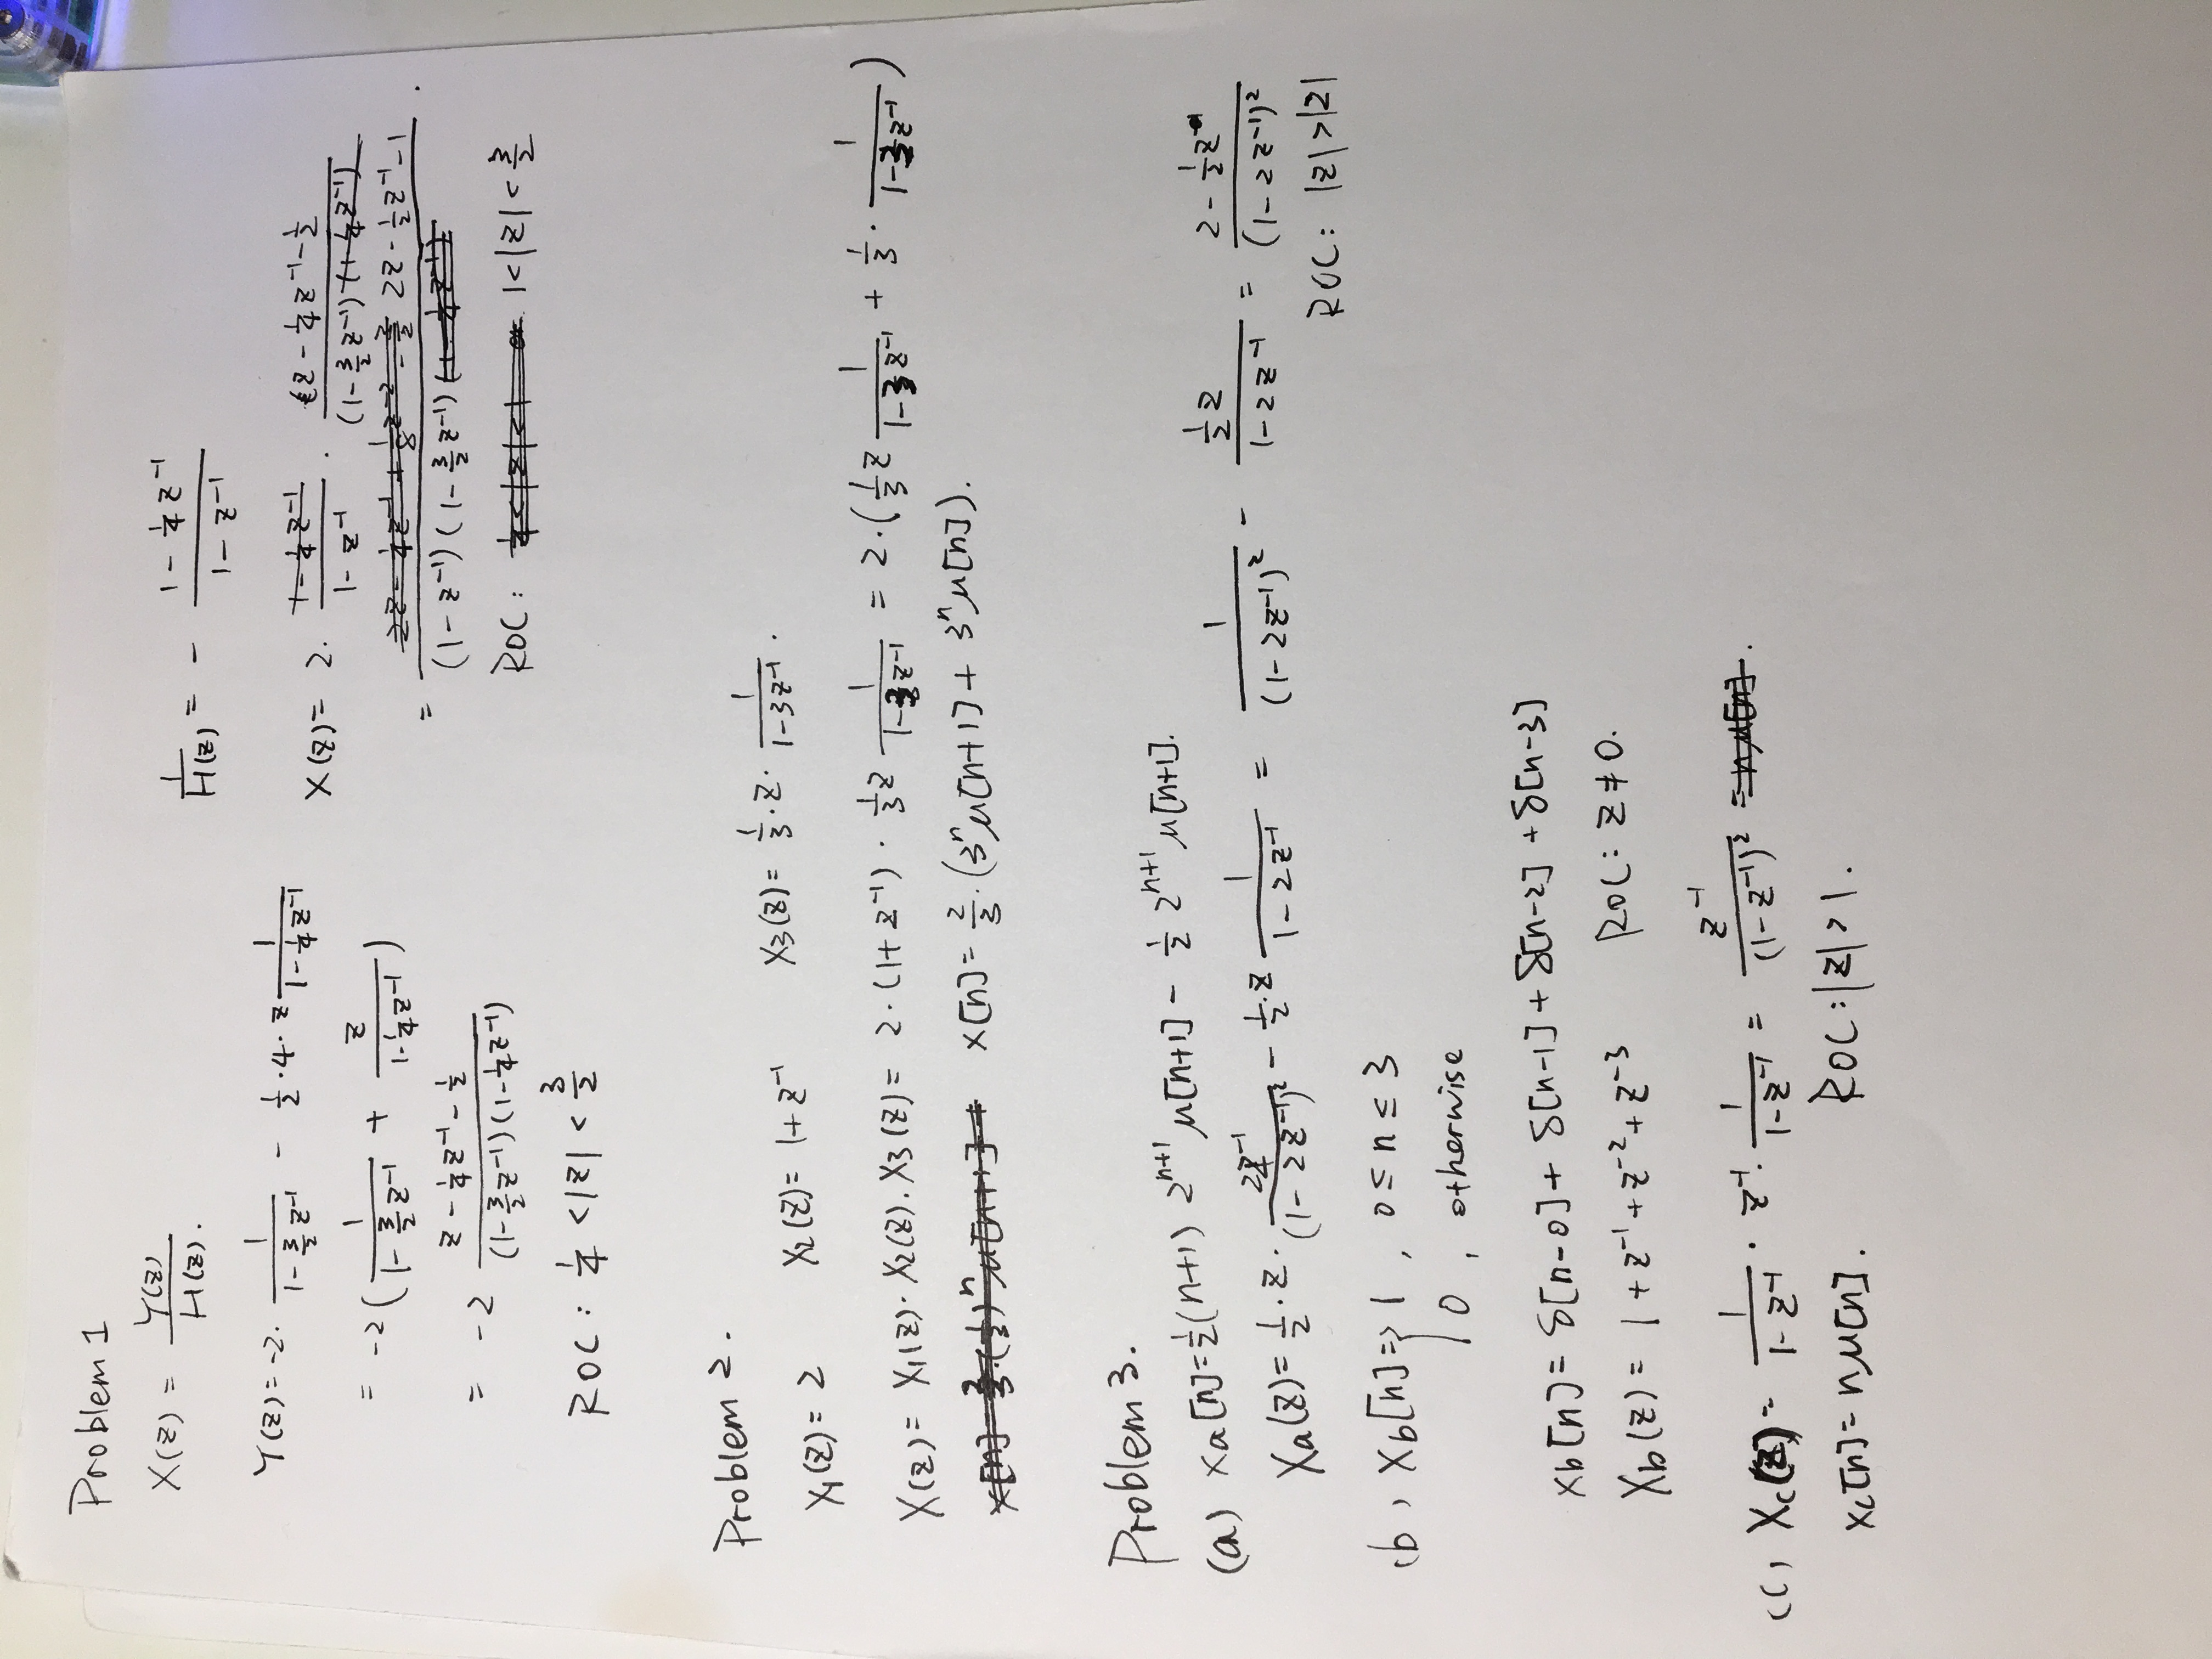 Problem 1
X(z) = Y(z)/H(z).
Y(z) = -2 · 1/(1 - 3/2 z⁻¹) - 1/2 · 4 · z 1/(1 - 1/4 z⁻¹)
= -2 ( 1/(1 - 3/2 z⁻¹) + z/(1 - 1/4 z⁻¹) )
= -2 (z - 1/4 z⁻¹ - 1/2)/((1 - 3/2 z⁻¹)(1 - 1/4 z⁻¹))
ROC : 1/4 < |z| < 3/2
1/H(z) = - (1 - 1/4 z⁻¹)/(1 - z⁻¹)
X(z) = 2 · (1 - 1/4 z⁻¹)/(1 - z⁻¹) · (z - 1/4 z⁻¹ - 1/2)/((1 - 3/2 z⁻¹)(1 - 1/4 z⁻¹))
= (2z - 1/2 z⁻¹ - 1)/((1 - z⁻¹)(1 - 3/2 z⁻¹)) .
ROC : 1 < |z| < 3/2
Problem 2 .
X₁(z) = 2 X₂(z) = 1 + z⁻¹ X₃(z) = 1/3 · z · 1/(1 - 3z⁻¹) .
X(z) = X₁(z) · X₂(z) . X₃(z) = 2 · (1 + z⁻¹) · 1/3 z 1/(1 - 3z⁻¹) = 2 · ( 1/3 z 1/(1 - 3z⁻¹) + 1/3 · 1/(1 - 3z⁻¹) )
x[n] = 2/3 · (3ⁿ μ[n+1] + 3ⁿ μ[n]) .
Problem 3 .
(a) xa[n] = 1/2 (n+1) 2ⁿ⁺¹ μ[n+1] - 1/2 2ⁿ⁺¹ μ[n+1] .
Xa(z) = 1/2 · z · 2z⁻¹/(1 - 2z⁻¹)² - 1/2 · z 1/(1 - 2z⁻¹) = 1/(1 - 2z⁻¹)² - (1/2 z)/(1 - 2z⁻¹) = (2 - 1/2 z)/(1 - 2z⁻¹)²
ROC : |z| > |2|
(b) Xb[n] = { 1 , 0 ≤ n ≤ 3
0 , otherwise
xb[n] = δ[n-0] + δ[n-1] + δ[n-2] + δ[n-3]
Xb(z) = 1 + z⁻¹ + z⁻² + z⁻³ ROC : z ≠ 0 .
(c) Xc(z) = 1/(1 - z⁻¹) · z⁻¹ · 1/(1 - z⁻¹) = z⁻¹/(1 - z⁻¹)² .
xc[n] = n μ[n] . ROC : |z| > 1 .